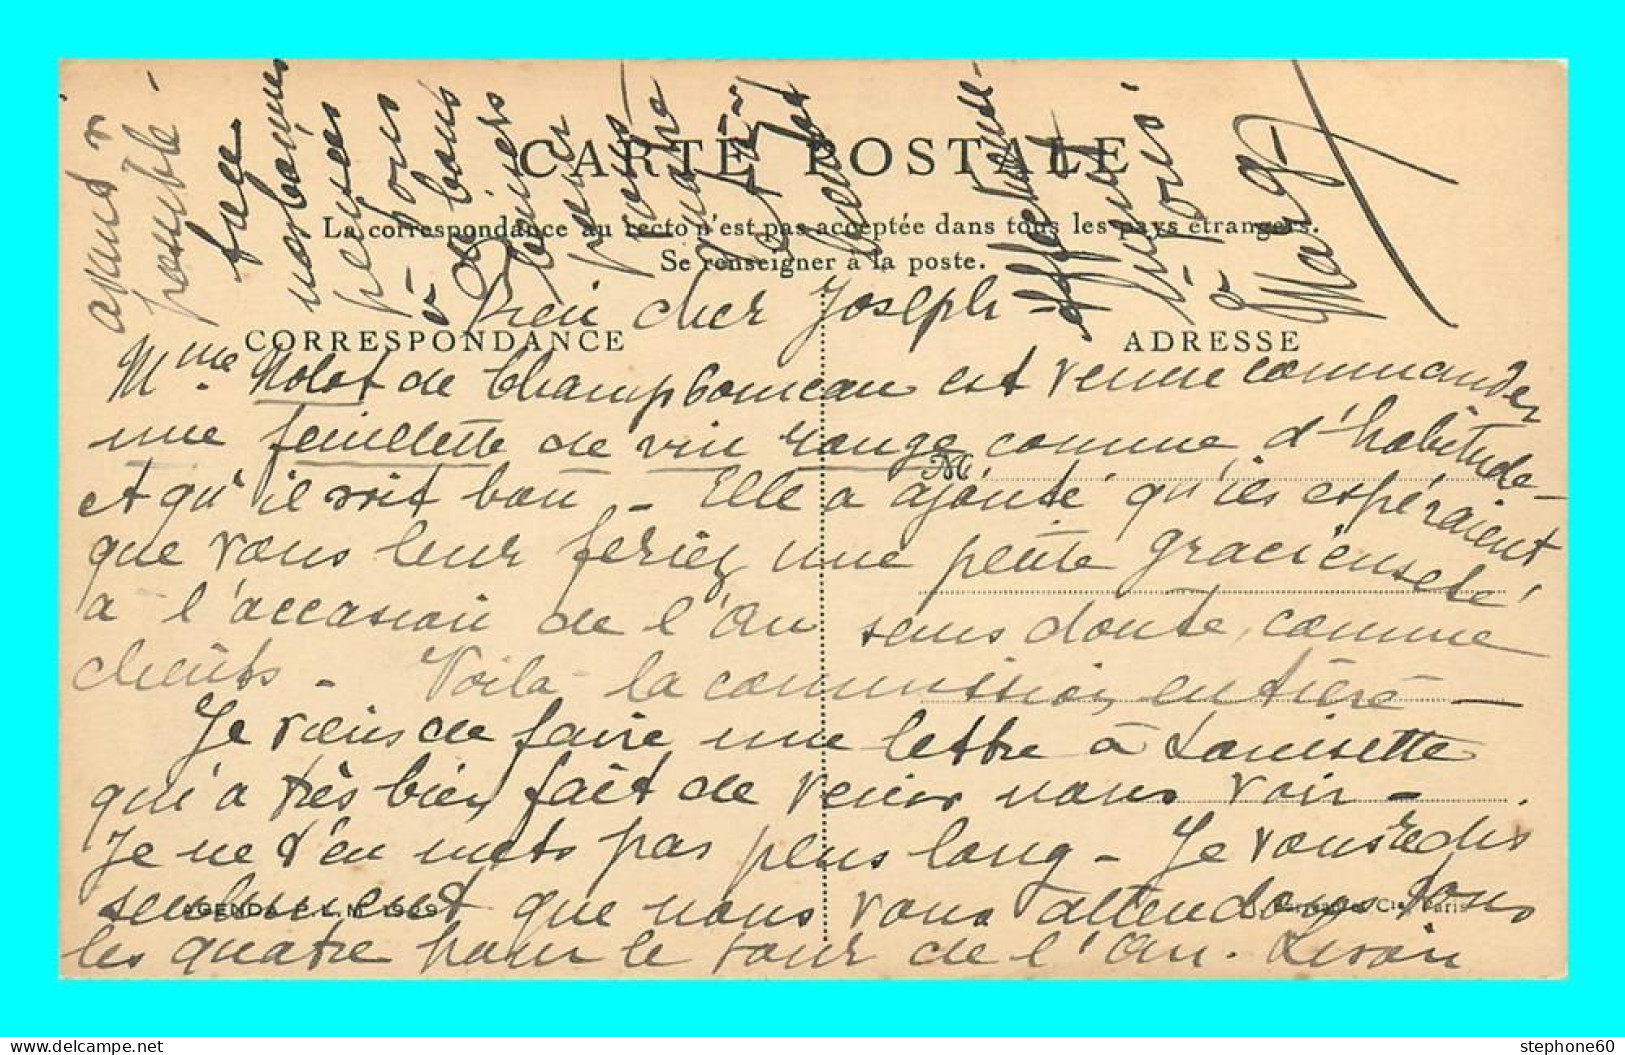 CARTE POSTALE
La correspondance au recto n'est pas acceptée dans tous les pays étrangers.
Se renseigner à la poste.
CORRESPONDANCE
ADRESSE
Bien cher Joseph -
Mme Nolot de Champbomeau est venue commander
une feuillette de vin rouge comme d'habitude
et qu'il soit bon - Elle a ajouté qu'ils espéraient
que vous leur feriez une petite gracieuseté
a l'occasion de l'An sans doute, comme
clients - Voilà la commission entière -
Je viens de faire une lettre à Louisette
qui a très bien fait de venir nous voir -
Je ne t'en mets pas plus long - Je vous redis
seulement que nous vous attendons tous
les quatre pour le jour de l'An.
M
AGENDA P.L.M 1929
Barreau et Cie, Paris
possible -
nos bonnes
pensées
pour
& bons
baisers
pour
vous
affectueuse-
ment
à tous
Marg
stephone60